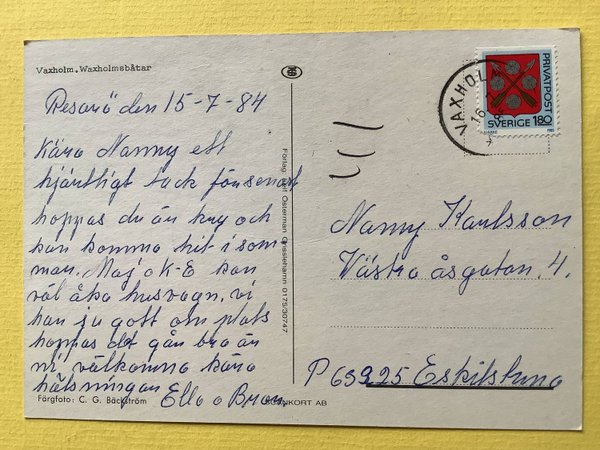 Vaxholm. Waxholmsbåtar
Resarö den 15-7-84
Kära Nanny ett
hjärtligt tack för senast
hoppas du är kry och
kan komma hit i som
mar. Maj o K-E kan
väl åka husvagn. vi
har ju gott om plats
hoppas det går bra är
ni välkomna kära
hälsningar Ella o
Färgfoto: C. G. Bäckström
Förlag: Osterman Grisslehamn 0175/30747
KORT AB
VAXHOLM
16
PRIVATPOST
SVERIGE 180
Nanny Karlsson
Västra åsgatan. 4.
P 63225 Eskilstuna